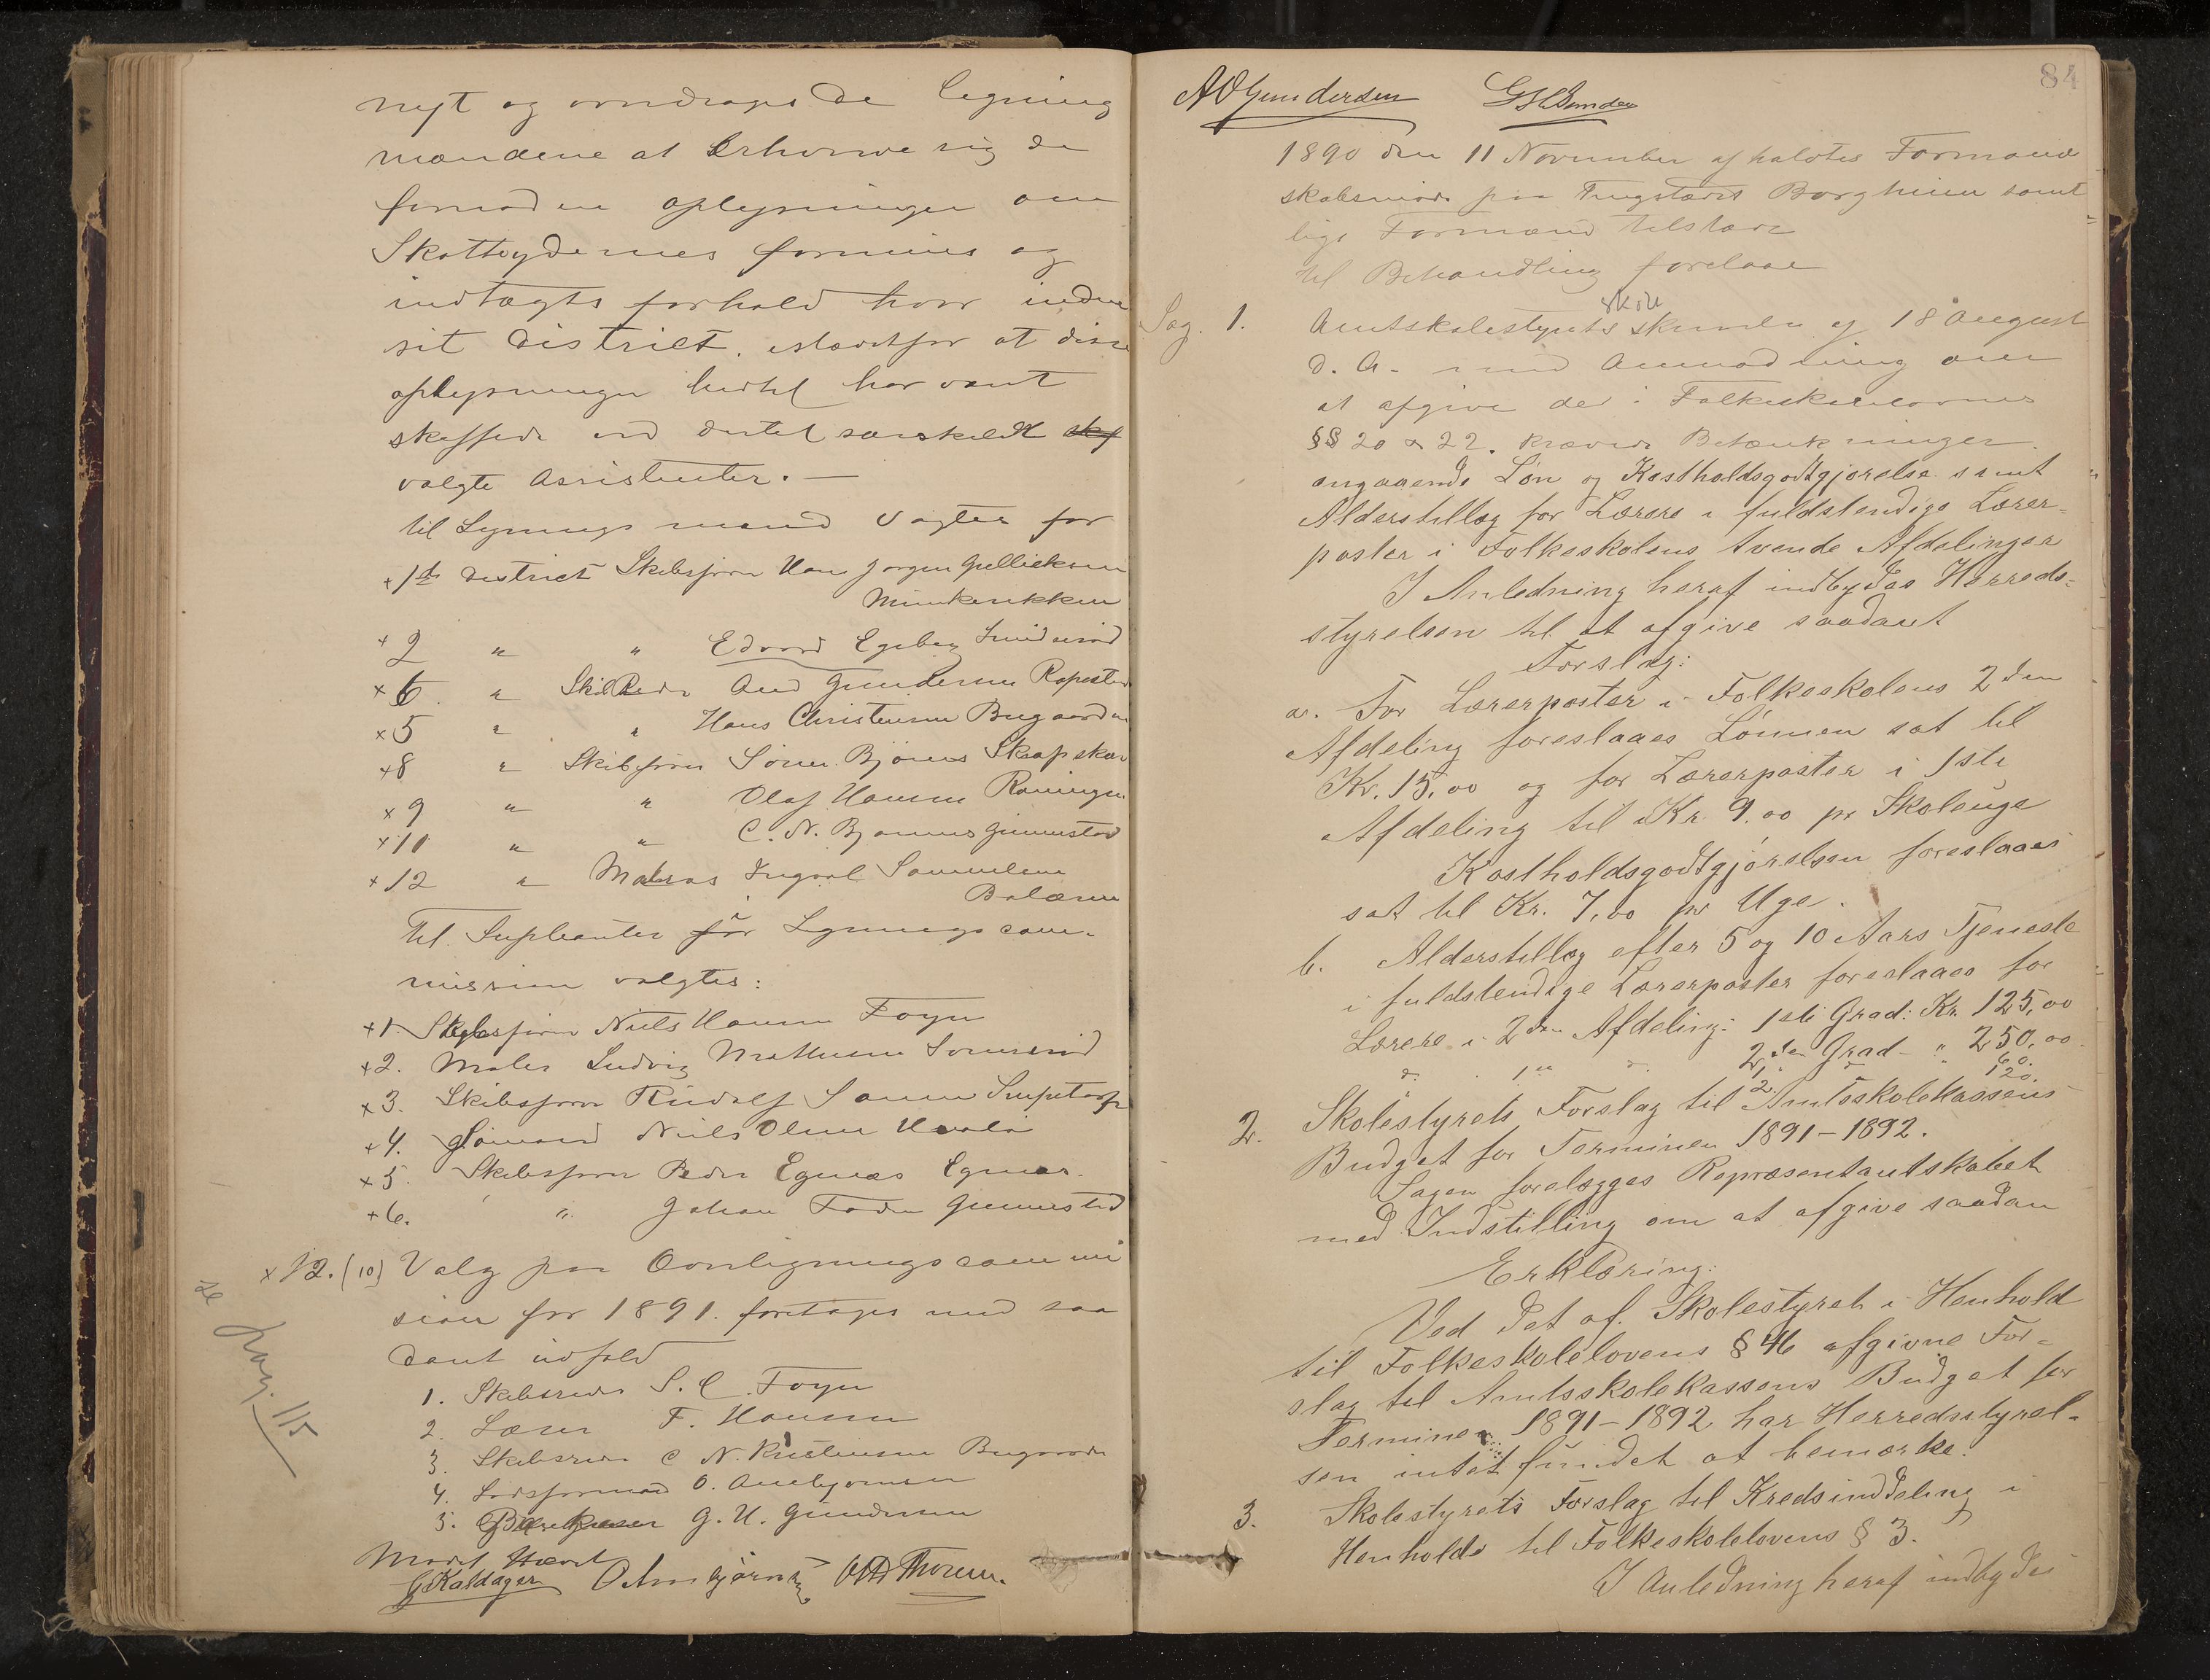 nyt og anmodges de ligning
mændene at Erhverve sig de
fornødne oplysninger om
Skatteydernes formues og
indtægts forhold hver inden
sit District. istedetfor at disse
oplysninger hidtil har været
skaffede ved dertil særskildt
valgte Assistenter. —
til Lignings mænd valgtes for
+ 1ste District Skibsfører Hans Jørgen Gulliksen
Munkerekken
+ 2 " " Edvard Egeberg
× 6 " Skibsreder And Gundersen
× 5 " " Hans Christensen Bugaarden
+8 " Skibsfører Søren Bjønnes
× 9 " " Olaf Hansen
×11 " " C. N. Bjønnes Gimmestad
+12 " Matros Ingval Samuelsen
Bolæren
til Supleanter for Lignings com-
mission valgtes:
+1. Skibsfører Niels Hansen Foyn
+2. Maler Ludvig Mathisen
×3. Skibsfører Rudolf
+4. Niels Olsen
×5. Skibsfører Peder Egenæs Egenæs.
+6. " Johan Foden Gimmestad
×12. (10) Valg paa Overligningscommi
sion for 1891. foretages med saa
dant udfald
1. Skibsreder S. C. Foyn
2. F. Hansen
3. Skibsreder C N. Kristensen Bugaarden
4. Lodsformand O. Arnbjørnsen
5. G. H. Gundersen
se pag. 115
G Kaldager O Arnbjørnsen Otto Thoresen.
84
A O Gundersen
1890 den 11 November afholdtes Formand
skabsmøde paa Tingstedet Borgheim samt
lige Formænd tilstede
til Behandling forelaae
Sag. 1. Amtskolestyrets skrivelse af 18 August
d. A. med Anmodning om
at afgive de i Folkeskolelovens
§§ 20 & 22. krævede Betænkninger
angaaende Løn og Kostholdsgodtgjørelse samt
Alderstillæg for Lærere i fuldstendige Lærer-
poster i Folkeskolens tvende Afdelinger
I Anledning heraf indbydes Herreds-
styrelsen til at afgive saadant
Forslag:
a. For Lærerposter i Folkeskolens 2den
Afdeling foreslaaes Lønnen sat til
Kr. 15,00 og for Lærerposter i 1ste
Afdeling til Kr. 9,00 pr Skoleuge
Kostholdsgodtgjørelsen foreslaaes
sat til Kr. 7,00 pr Uge.
b. Alderstillæg efter 5 og 10 Aars Tjeneste
i fuldstendige Lærerposter foreslaaes for
Lærere i 2den Afdeling: 1ste Grad: Kr. 125,00
2den Grad - " 250,00
d. 1ste d. 1. d " 60.
2. 120.
2. Skolestyrets Forslag til Amtsskolekassens
Budget for Terminen 1891-1892.
Sagen forelægges Repræsentantskabet
med Indstilling om at afgive saadan
Erklæring:
Ved det af Skolestyret i Henhold
til Folkeskolelovens § 46 afgivne For-
slag til Amtsskolekassens Budget for
Terminen 1891-1892 har Herredsstyrel-
sen intet fundet at bemærke.
3. Skolestyrets Forslag til Kredsinddeling i
Henholds til Folkeskolelovens § 3.
I Anledning heraf indbydes